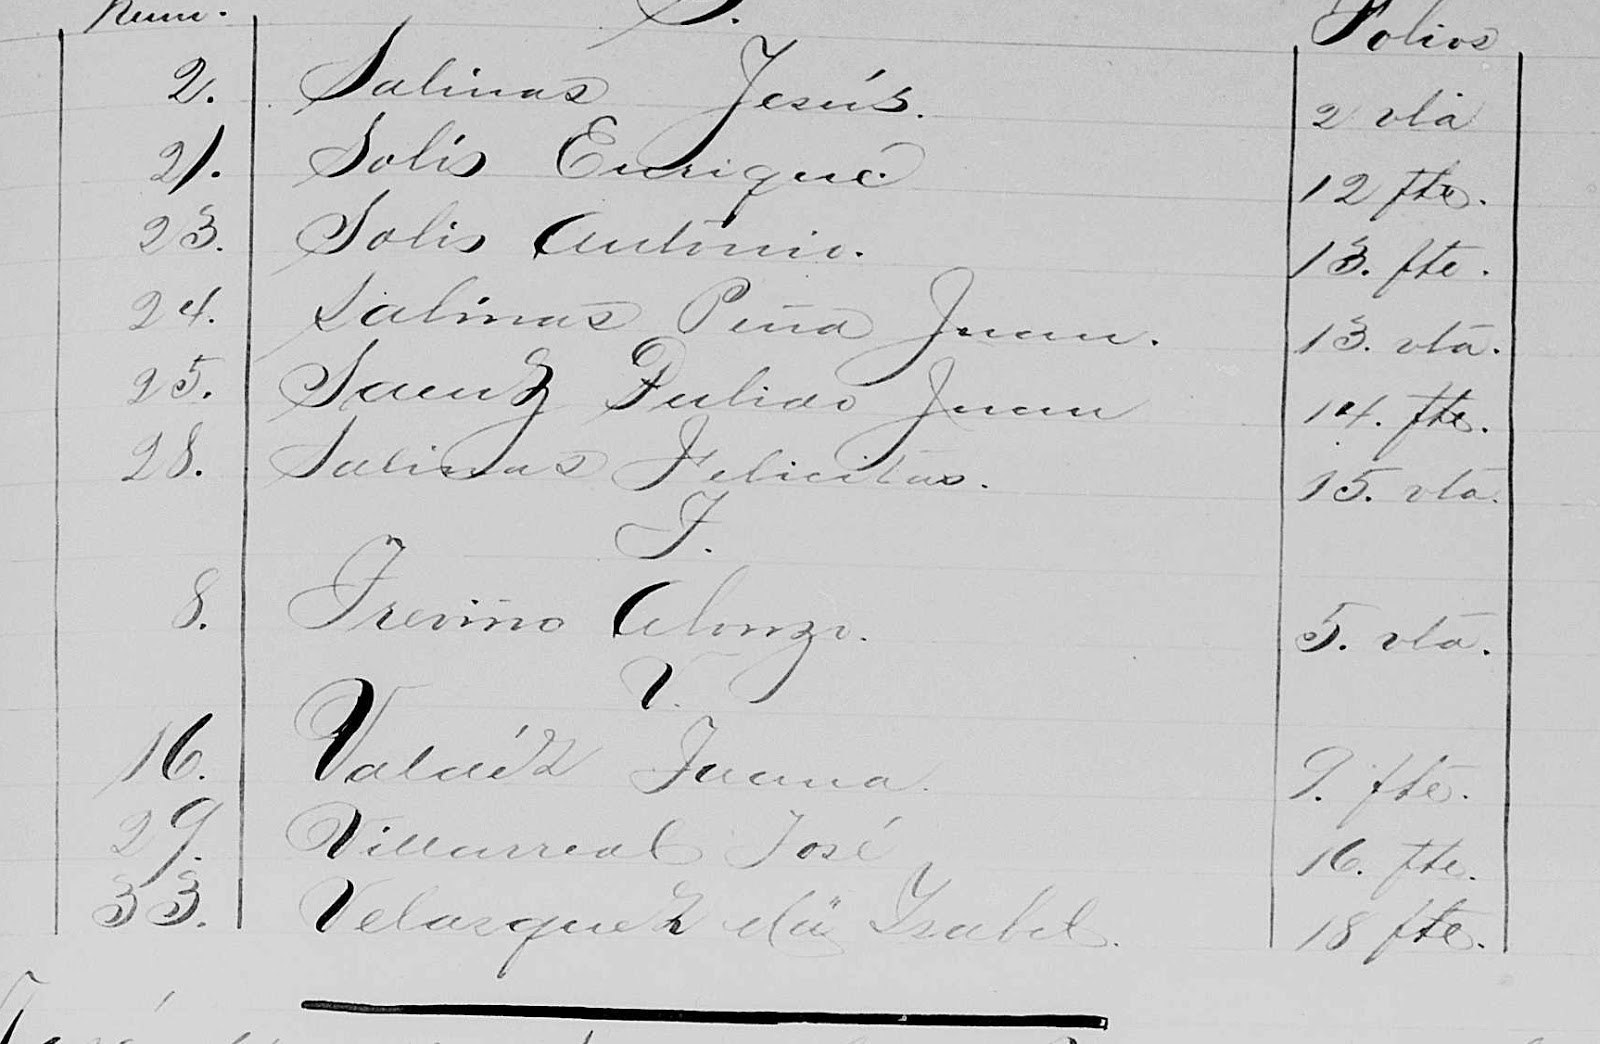 Num. S. Folios
2. Salinas Jesús. 2 vtā
21. Solís Enrique 12 fte.
23. Solis Antonio. 13. fte.
24. Salinas Peña Juan. 13. vtā.
25. Saenz Pulido Juan 14. fte.
28. Salinas Felicitas. 15. vtā.
T.
8. Treviño Alonzo. 5. vtā.
V.
16. Valdéz Juana. 9. fte.
29. Villarreal José 16. fte.
33. Velasquez Isabel. 18 fte.